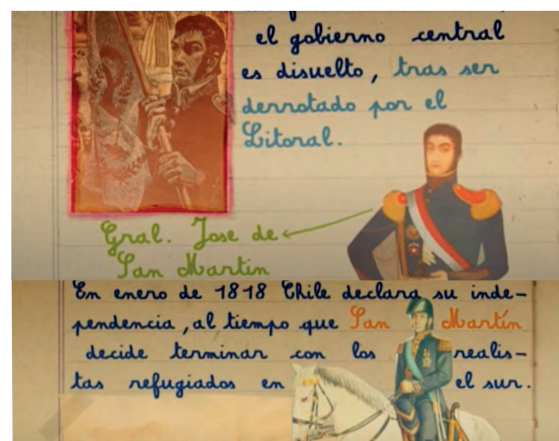 el gobierno central
es disuelto, tras ser
derrotado por el
Litoral.
Gral. Jose de
San Martin
En enero de 1818 Chile declara su inde-
pendencia, al tiempo que San Martín
decide terminar con los realis-
tas refugiados en el sur.